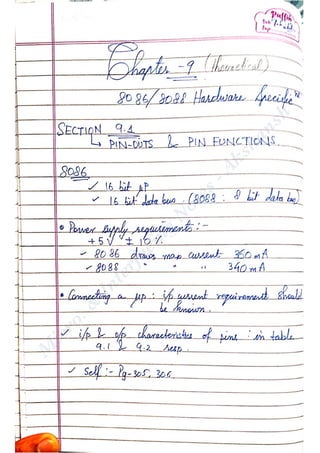 Chapter - 9 (theoretical)
8086/8088 Hardware Specific^n
SECTION 9.1
↳ PIN-OUTS & PIN FUNCTIONS.
8086
✓ 16 bit μP
✓ 16 bit data bus. (8088 : 8 bit data bus)
• Power supply requirements :-
+5V ± 10%
✓ 8086 draws max current 360 mA
✓ 8088 " " " 340 mA
• Connecting a μp : i/p current requirement should
be known.
✓ i/p & o/p characteristics of pins : in table
9.1 & 9.2 resp.
✓ Self :- Pg-305, 306.